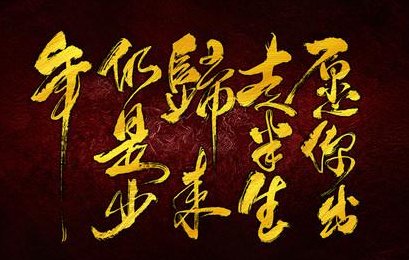 愿你出
走半生
歸来
仍是少
年